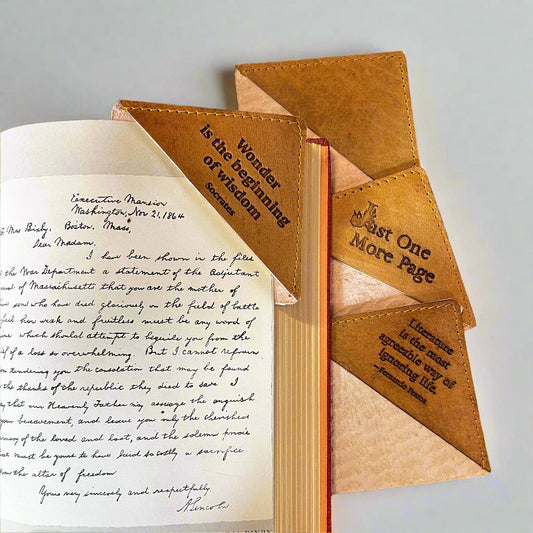 Executive Mansion
Washington, Nov 21, 1864
Mrs Bixby, Boston, Mass,
Dear Madam.
I have been shown in the files
the War Department a statement of the Adjutant
of Massachusetts that you are the mother of
sons who have died gloriously on the field of battle
feel how weak and fruitless must be any word of
which should attempt to beguile you from the
of a loss so overwhelming But I cannot refrain
tendering you the consolation that may be found
the thanks of the republic they died to save I
that our Heavenly Father may assuage the anguish
your bereavement, and leave you only the cherished
of the loved and lost, and the solemn pride
must be yours to have laid so costly a sacrifice
the altar of freedom
Yours very sincerely and respectfully
A. Lincoln
Wonder
is the beginning
of wisdom
Socrates
Just One
More Page
Literature
is the most
agreeable way of
ignoring life
—Fernando Pessoa